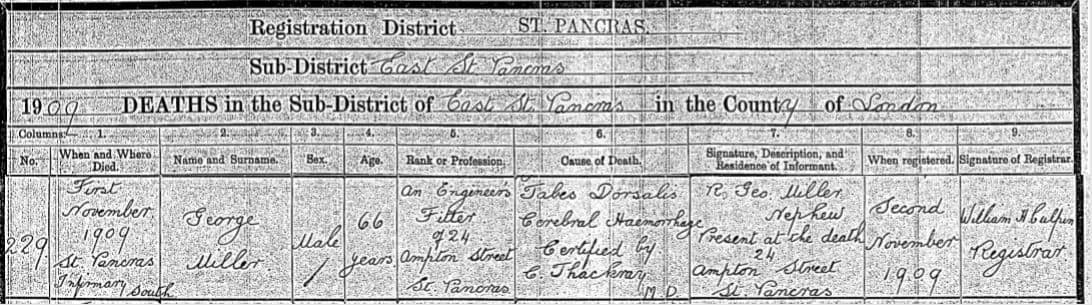 Registration District ST. PANCRAS.
Sub-District East St Pancras
1909 DEATHS in the Sub-District of East St. Pancras in the County of London
Columns:— 1. 2. 3. 4. 5. 6. 7. 8. 9.
No. When and Where Died. Name and Surname. Sex. Age. Rank or Profession. Cause of Death. Signature, Description, and Residence of Informant. When registered. Signature of Registrar.
229
First
November
1909
St. Pancras
Infirmary South
George
Miller
Male
66
years
An Engineer's
Fitter
of 24
Ampton Street
St. Pancras
Tabes Dorsalis
Cerebral Haemorrhage
Certified by
C. Thackray
M.D.
R. Geo. Miller
Nephew
Present at the death
24
Ampton Street
St. Pancras
Second
November
1909
William H
Registrar.